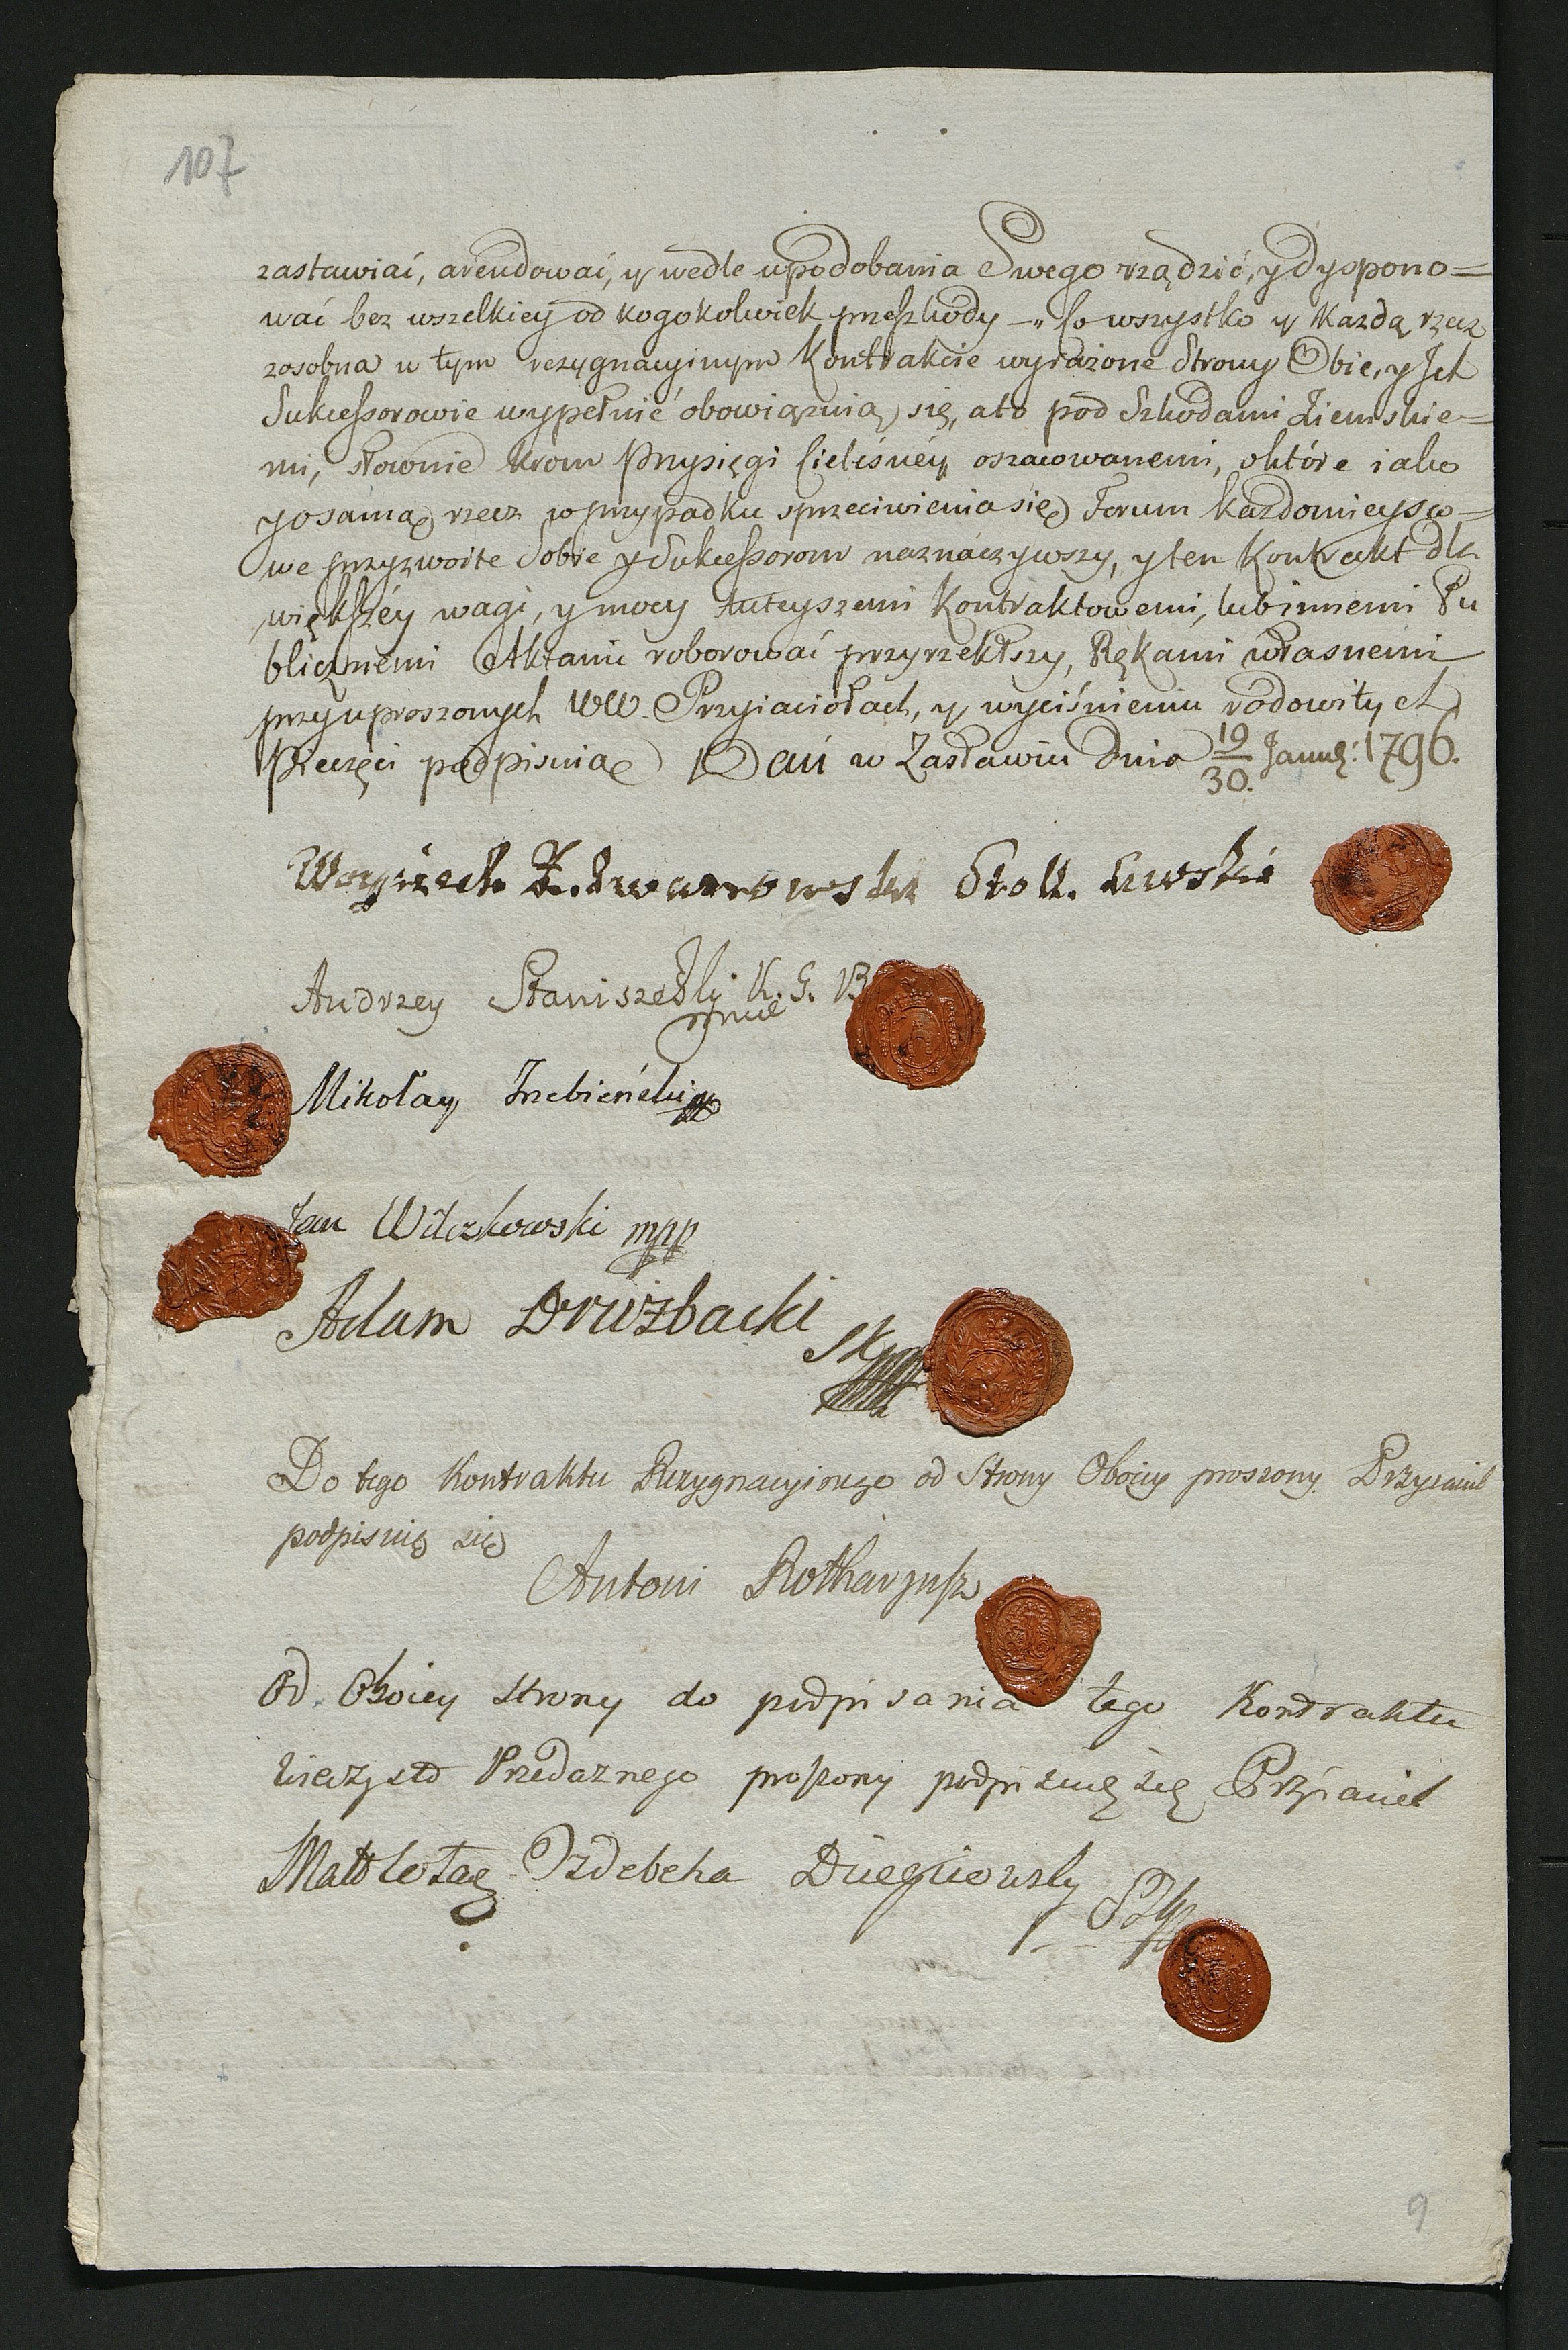 107
zastawiać, arendować, y wedle upodobania Swego rządzić, y dyspono=
wać bez wszelkiey od kogokolwiek przeszkody —„ Co wszystko y Każdą rzecz
zosobna w tym rezygnacyinym Kontrakcie wyrażone Strony Obie, y Ich
Sukcessorowie wypełnić obowiązuią się, a to pod Szkodami Ziemskie=
mi, słownie krom Przysięgi Cieleśnéy oszacowanemi, o które iako
y o samą rzecz w przypadku sprzeciwienia się Forum każdomieysco=
we przyzwoite Sobie y Sukcessorom naznaczywszy, y ten Kontrakt dla
większéy wagi, y mocy tuteyszemi Kontraktowemi, lub innemi Pu
blicznemi Aktami roborować przyrzekłszy, Rękami własnemi
przy uproszonych WW. Przyiaciołach, y wyciśnieniu rodowitych
Pieczęci podpisuią Dań w Zasławiu Dnia 19/30. Januar: 1796.
Woyciech Stoll.
Andrzey Staniszewski K. G. B
mppe
Mikołay Trzebieński
Jan Wilczkowski mpp
Adam Drużbacki
Do tego Kontraktu Rezygnacyinego od Strony Oboiey proszony Przyiaciel
podpisuię się
Antoni Rotharyusz
Od Oboiey strony do podpisania tego Kontraktu
wieczysto Przedaznego proszony podpisuię się Przyiaciel
Izdebcha
9